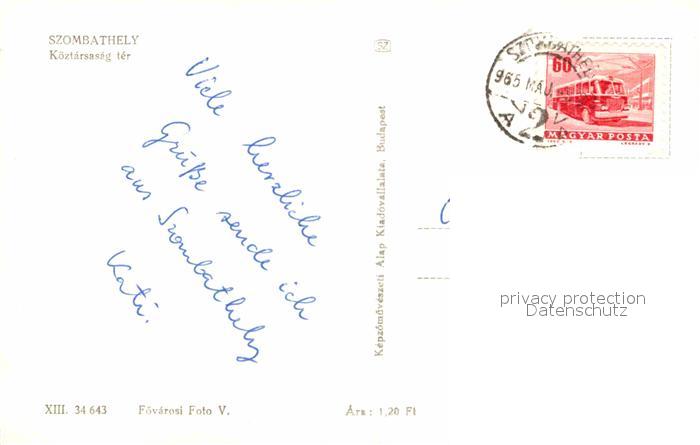 SZOMBATHELY
Köztársaság tér
Viele herzliche
Grüße sende ich
aus Szombathely
Kati.
SZ
Képzőművészeti Alap Kiadóvállalata, Budapest
SZOMBATHELY
965 MÁJ.
A 2
60
MAGYAR POSTA
privacy protection
Datenschutz
XIII. 34 643 Fővárosi Foto V. Ára: 1,20 Ft